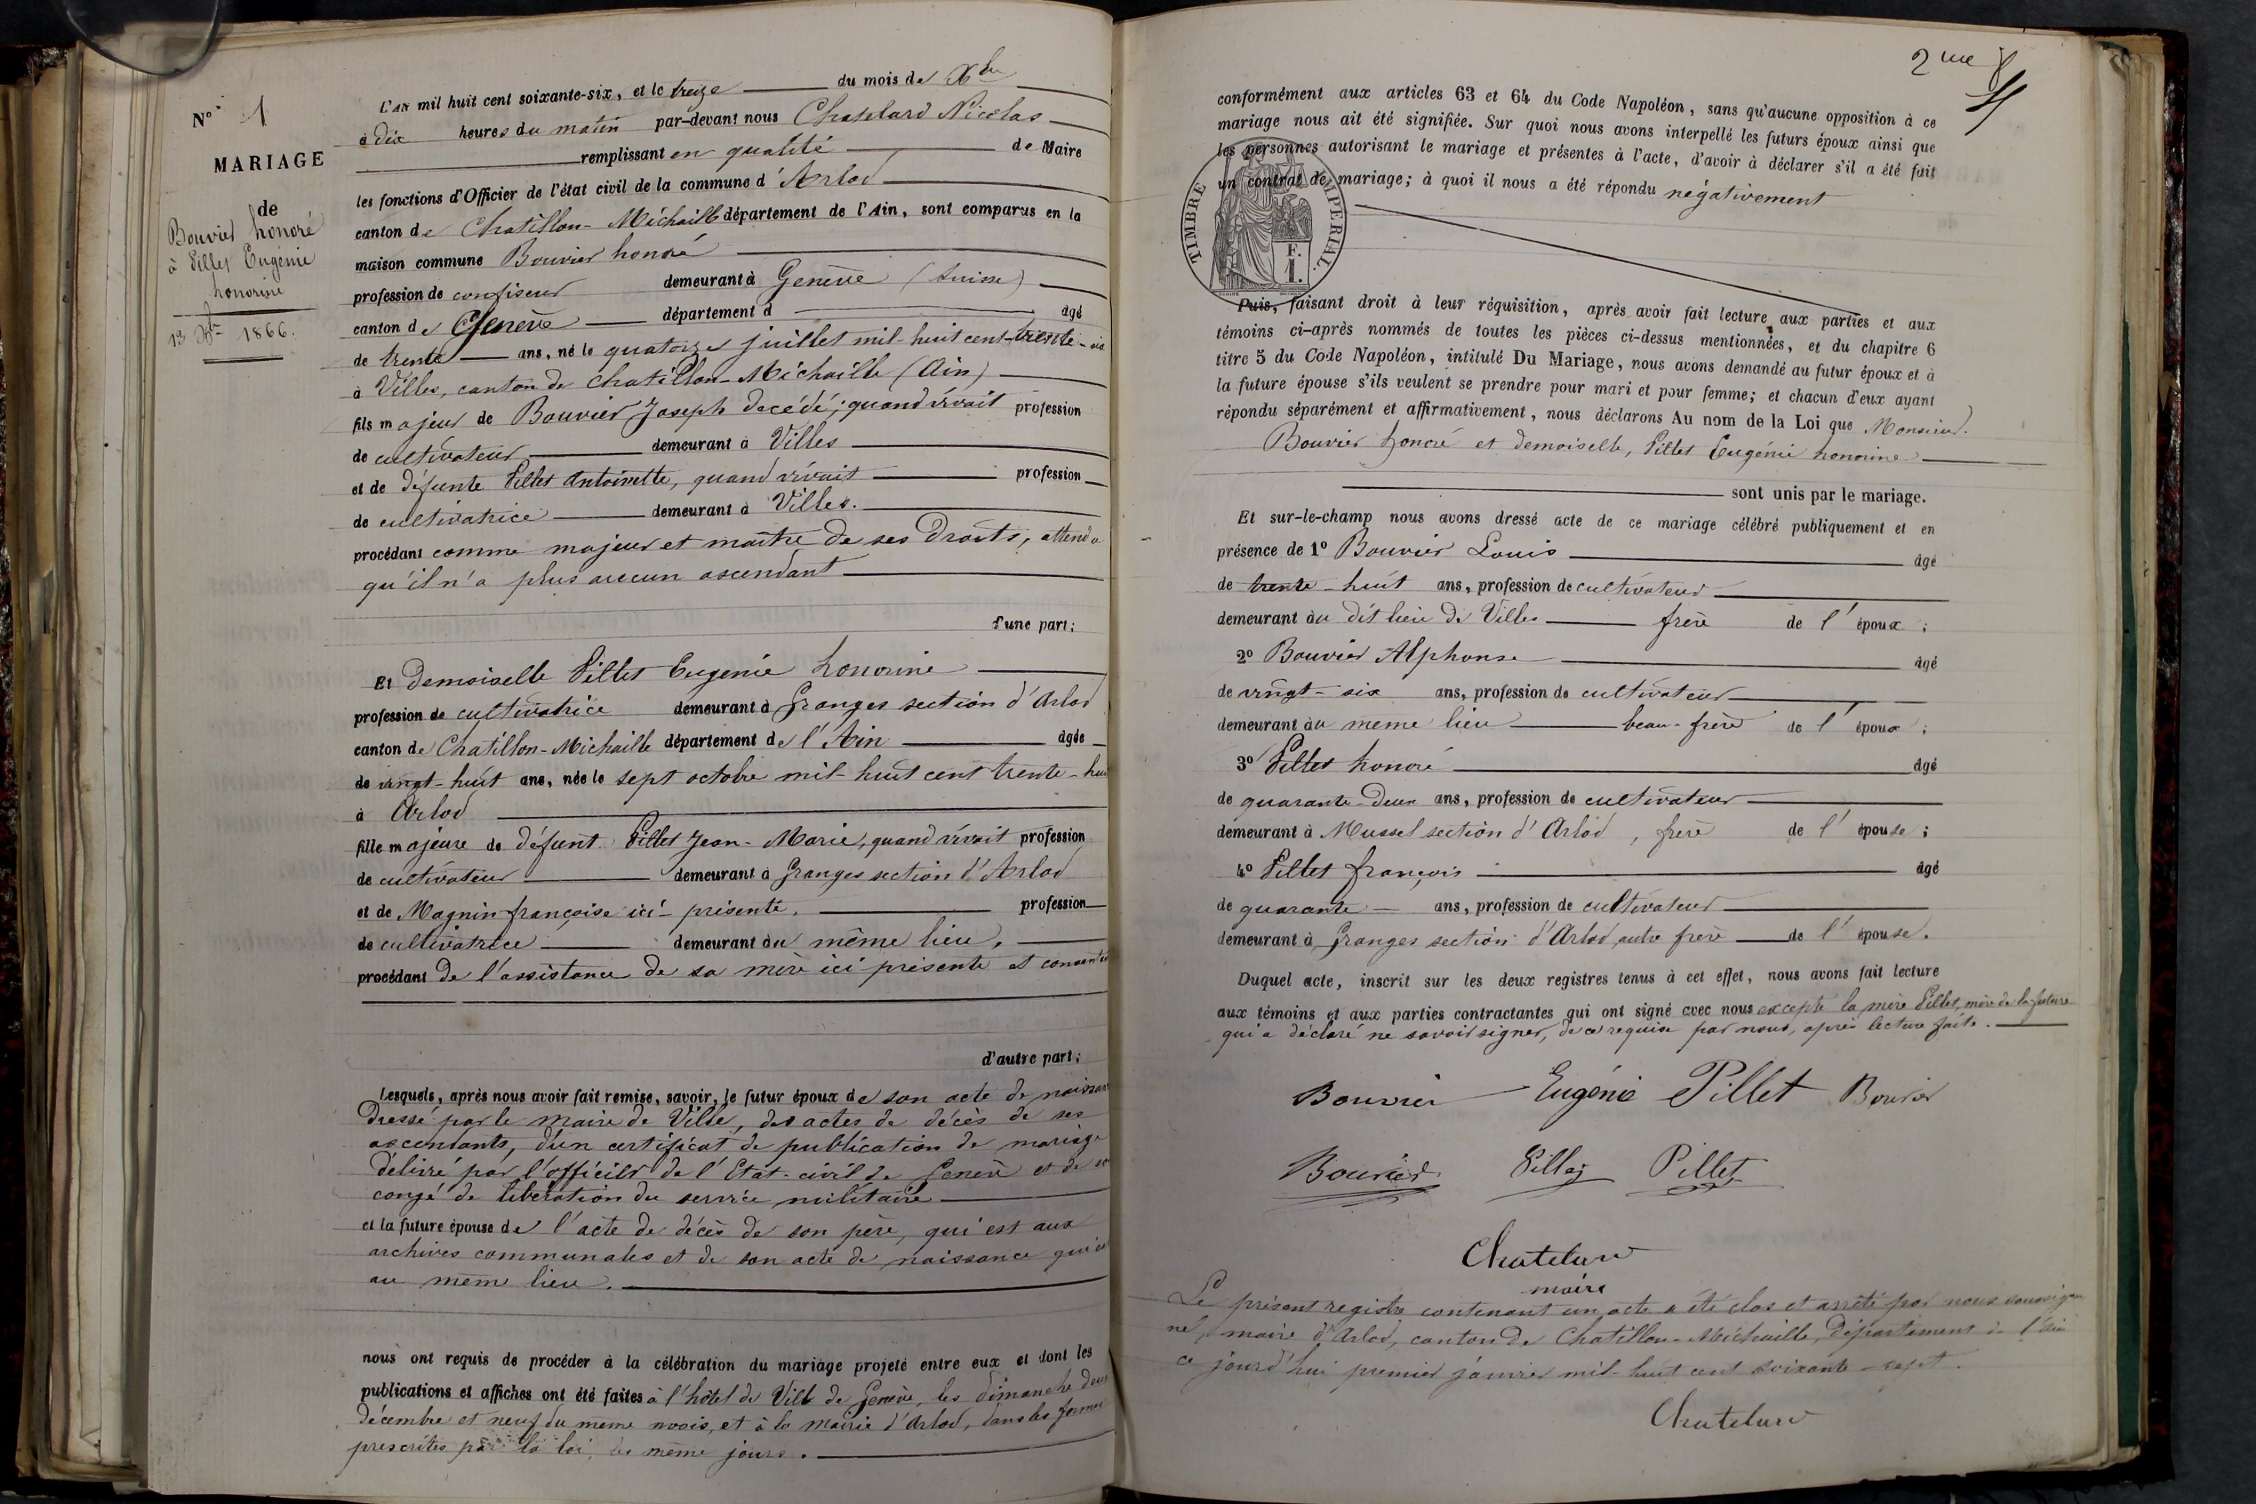 N° 1
MARIAGE
de
Bouvier honoré
à Pillet Eugénie
honorine
13 Xbre 1866.
L'an mil huit cent soixante-six, et le treize du mois de Xbre
à dix heures du matin par-devant nous Chatelard Nicolas
remplissant en qualité de Maire
les fonctions d'Officier de l'état civil de la commune d'Arlod
canton de Chatillon-Michaille département de l'Ain, sont comparus en la
maison commune Bouvier honoré
profession de confiseur demeurant à Genève (Suisse)
canton de Genève département d âgé
de trente ans, né le quatorze juillet mil-huit cent-trente-six
à Villes, canton de Chatillon-Michaille (Ain)
fils majeur de Bouvier Joseph décédé; quand vivait profession
de cultivateur demeurant à Villes
et de défunte Pillet Antoinette, quand vivait profession
de cultivatrice demeurant à Villes.
procédant comme majeur et maître de ses droits, attendu
qu'il n'a plus aucun ascendant
d'une part;
Et Demoiselle Pillet Eugénie honorine
profession de cultivatrice demeurant à Granges section d'Arlod
canton de Chatillon-Michaille département de l'Ain âgée
de vingt-huit ans, née le sept octobre mil-huit cent trente-huit
à Arlod
fille majeure de défunt Pillet Jean-Marie, quand vivait profession
de cultivateur demeurant à Granges section d'Arlod
et de Magnin françoise ici présente, profession
de cultivatrice demeurant au même lieu,
procédant de l'assistance de sa mère ici présente et consentante
d'autre part;
Lesquels, après nous avoir fait remise, savoir, le futur époux de son acte de naissance
dressé par le maire de Ville, des actes de décès de ses
ascendants, d'un certificat de publication de mariage
délivré par l'officier de l'Etat-civil de Genève et de son
congé de libération du service militaire
et la future épouse de l'acte de décès de son père, qui est aux
archives communales et de son acte de naissance qui est
au même lieu.
nous ont requis de procéder à la célébration du mariage projeté entre eux et dont les
publications et affiches ont été faites à l'hôtel de Ville de Genève, les dimanche deux
décembre et neuf du même mois, et à la mairie d'Arlod, dans les formes
prescrites par la loi, les même jours.
2me
conformément aux articles 63 et 64 du Code Napoléon, sans qu'aucune opposition à ce
mariage nous ait été signifiée. Sur quoi nous avons interpellé les futurs époux ainsi que
les personnes autorisant le mariage et présentes à l'acte, d'avoir à déclarer s'il a été fait
un contrat de mariage; à quoi il nous a été répondu négativement
TIMBRE IMPERIAL.
F.
1.
Puis, faisant droit à leur réquisition, après avoir fait lecture aux parties et aux
témoins ci-après nommés de toutes les pièces ci-dessus mentionnées, et du chapitre 6
titre 5 du Code Napoléon, intitulé Du Mariage, nous avons demandé au futur époux et à
la future épouse s'ils veulent se prendre pour mari et pour femme; et chacun d'eux ayant
répondu séparément et affirmativement, nous déclarons Au nom de la Loi que Monsieur
Bouvier honoré et demoiselle, Pillet Eugénie honorine
sont unis par le mariage.
Et sur-le-champ nous avons dressé acte de ce mariage célébré publiquement et en
présence de 1° Bouvier Louis âgé
de trente-huit ans, profession de cultivateur
demeurant au dit lieu de Villes frère de l'époux;
2° Bouvier Alphonse âgé
de vingt-six ans, profession de cultivateur
demeurant au même lieu beau-frère de l'époux;
3° Pillet honoré âgé
de quarante-deux ans, profession de cultivateur
demeurant à Mussel section d'Arlod, frère de l'épouse;
4° Pillet françois âgé
de quarante ans, profession de cultivateur
demeurant à Granges section d'Arlod, autre frère de l'épouse.
Duquel acte, inscrit sur les deux registres tenus à cet effet, nous avons fait lecture
aux témoins et aux parties contractantes qui ont signé avec nous excepté la mère Pillet, mère de la future
qui a déclaré ne savoir signer, de ce requise par nous, après lecture faite.
Bouvier Eugénie Pillet Bouvier
Bouvier Pillet Pillet
Chatelard
maire
Le présent registre contenant un acte a été clos et arrêté par nous soussigné
né, maire d'Arlod, canton de Chatillon-Michaille, département de l'Ain
ce jourd'hui premier janvier mil-huit cent soixante-sept.
Chatelard